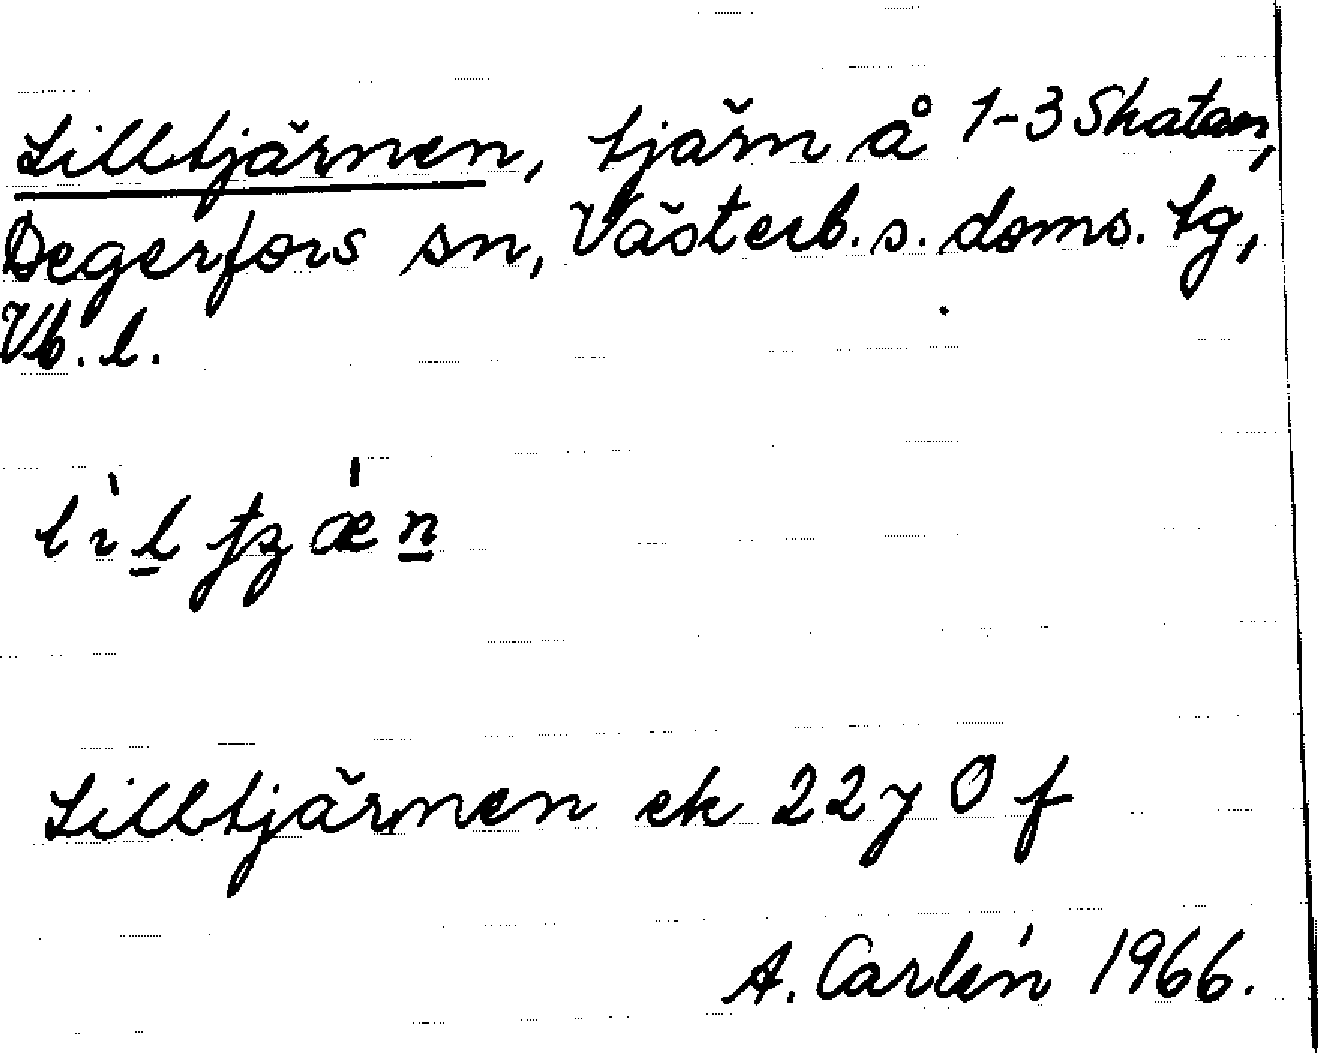 Lilltjärnen, tjärn å 1-3 Skatan,
Degerfors sn, Västerb. s. doms. tg,
Vb. l.
Lilltjärnen ek 22 y 0 f
A. Carlén 1966.